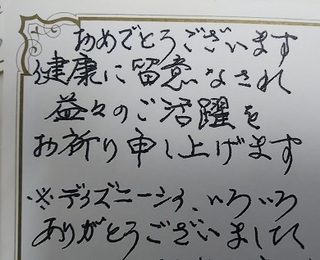 おめでとうございます
健康に留意なされ
益々のご活躍を
お祈り申し上げます
※ディズニーシー、いろいろ
ありがとうございましたく